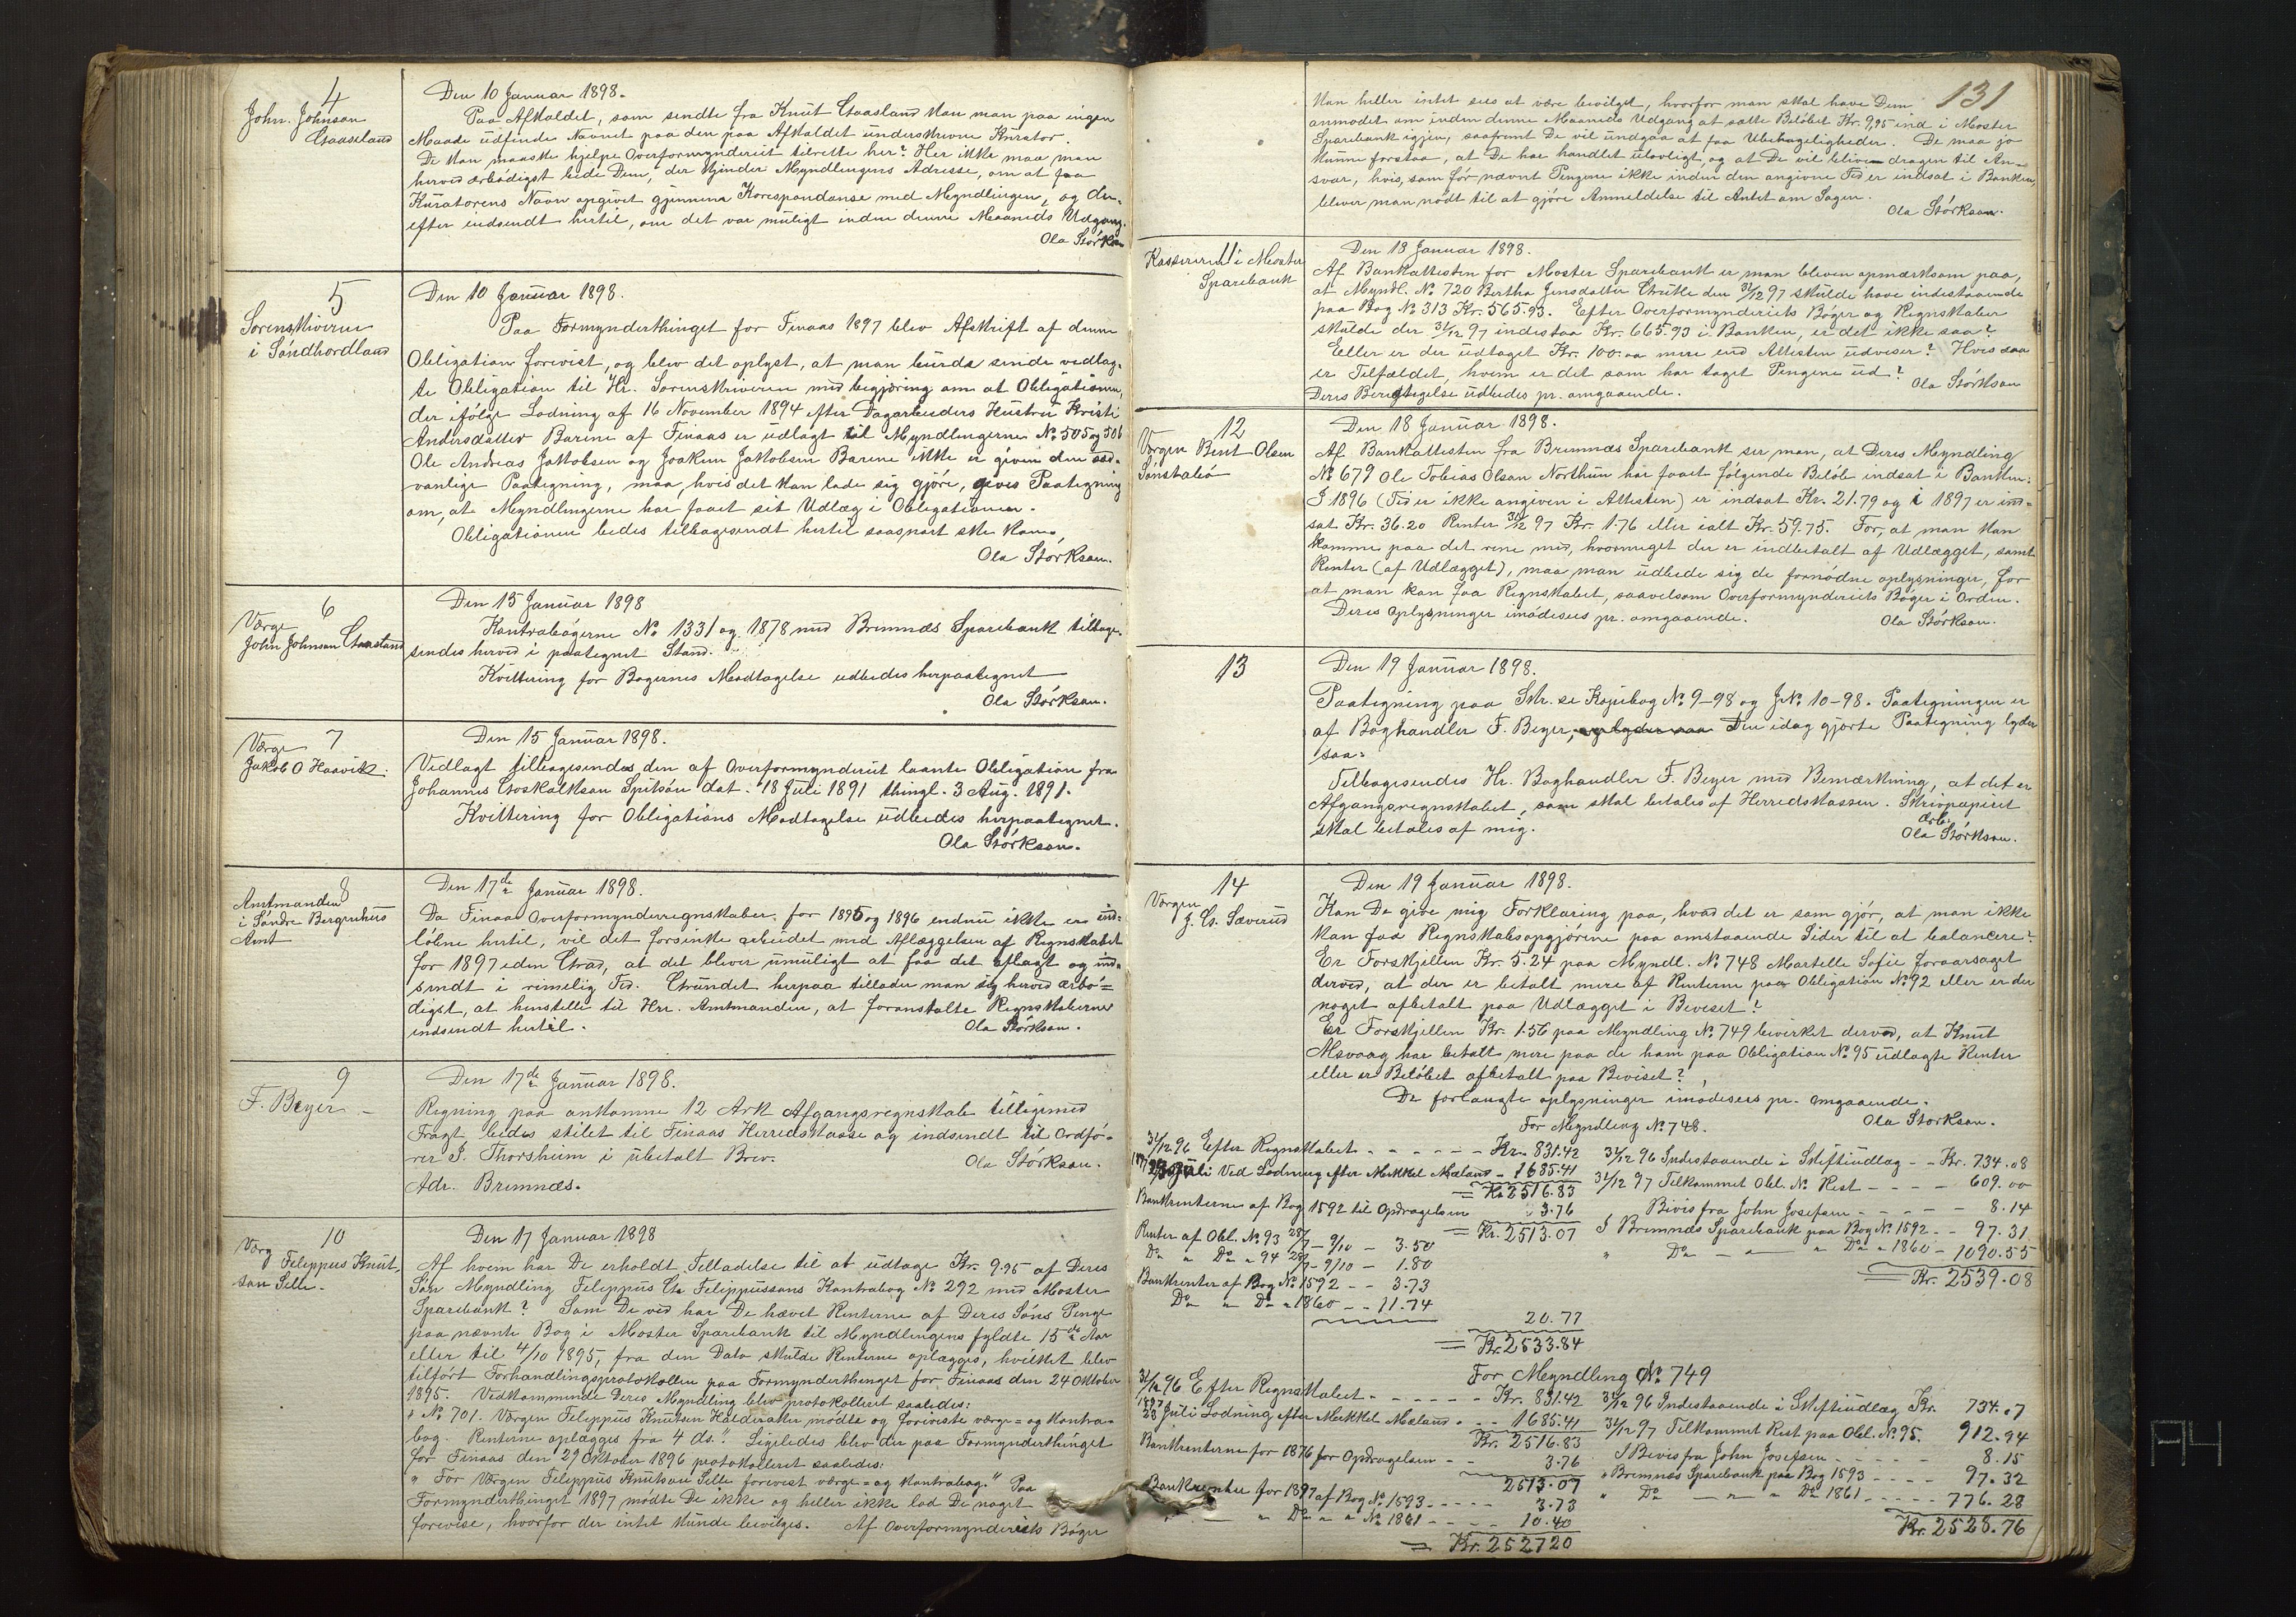 4
John. Johnson
Gaasland
Den 10 Januar 1898.
Paa Afkaldet, som sendte fra Knut Gaasland kan man paa ingen
Maade udfinde Navnet paa den paa Afkaldet underskrevne Kurator.
De kan maaske hjelpe Overformynderiet tilrette her? Her ikke maa man
herved ærbödigst bede Dem, der kjender Myndlingens Adresse, om at faa
Kuratorens Navn opgivet gjennem Korespondanse med Myndlingen, og der-
efter indsendt hertil, om det var muligt inden denne Maaneds Udgang.
Ola Störkson
5
Sorenskriveren
i Söndhordland
Den 10 Januar 1898.
Paa Formynderthinget for Finaas 1897 blev Afskrift af denne
Obligation forevist, og blev det oplyst, at man burde sende vedlag-
te Obligation til Hr. Sorenskriveren med begjæring om at Obligationen,
der ifölge Lodning af 16 November 1894 efter Dagarbeiders Hustru Kristi
Andersdatter Barene af Finaas er udlagt til Myndlingerne No 505 og 506
Ole Andreas Jakkobsen og Joakim Jakkobsen Barene ikke er given den sæd-
vanlige Paategning, maa, hvis det kan lade sig gjöre, gives Paategning
om, at Myndlingerne har faaet sit Udlæg i Obligationen.
Obligationen bedes tilbagesendt hertil saasnart ske kan.
Ola Störkson.
6
Værge
John Johnson Gaasland
Den 15 Januar 1898
Kontrabögerne No 1331 og 1878 med Bremnæs Sparebank tilbage-
sendes herved i paategnet Stand.
Kvittering for Bøgernes Modtagelse udbedes herpaategnet
Ola Störkson.
7
Værge
Jakob O Haavik.
Den 15 Januar 1898.
Vedlagt tilbagesendes den af Overformynderiet laante Obligation fra
Johannes Goskalkson Spitsöu dat. 18 Juli 1891 thingl. 3 Aug. 1891.
Kvittering for Obligations Modtagelse udbedes herpaategnet.
Ola Störkson.
8
Amtmanden
i Söndre Bergenhus
Amt
Den 17de Januar 1898.
Da Finaas Overformynderregnskaber for 1895 og 1896 endnu ikke er ind-
löbne hertil, vil det forsinke arbeidet med Aflæggelsen af Regnskabet
for 1897 eden Grad, at det bliver umuligt at faa det aflagt og ind-
sendt i rimelig Tid. Grundet herpaa tillader man sig herved ærbö=
digst, at henstille til Hrr. Amtmanden, at foranstalte Regnskaberne
indsendt hertil.
Ola Störkson.
9
F. Beyer –
Den 17de Januar 1898.
Regning paa ankomne 12 Ark Afgangsregnskab tilligemed
Fragt bedes stilet til Finaas Herredskasse og indsendt til Ordfö-
rer S. Thorsheim i ubetalt Brev.
Ola Störkson.
Adr. Bremnæs.
10
Værg Filippus Knut,
son Selle.
Den 17 Januar 1898
Af hvem har De erholdt Tilladelse til at udtage Kr. 9.95 af Deres
Sön Myndling Filippus Filippussons Kontrabog No 292 med Moster
Sparebank? Som De ved har De hævet Renterne af Deres Söns Penge
paa nævnte Bog i Moster Sparebank til Myndlingens fyldte 15de Aar
eller til 4/10 1895, fra den Dato skulde Renterne oplægges, hvilket blev
tilfört Forhandlingsprotokollen paa Formynderthinget for Finaas den 24 Oktober
1895. Vedkommende Deres Myndling blev protokolleret saaledes:
" No 701. Værgen Filippus Knutsen Halderaker mödte og foreviste værge= og kontra-
bog. Renterne oplægges fra 4 ds." Ligeledes blev der paa Formynderthinget
for Finaas den 29 Oktober 1896 protokolleret saaledes:
" For Værgen Filippus Knutson Selle forevist værge= og kontrabog." Paa
Formynderthinget 1897 mödte De ikke og heller ikke lod De noget
forevise, hvorfor der intet kunde bevilges. Af Overformynderiets Böger
131
kan heller intet sees at være bevilget, hvorfor man skal have Dem
anmodet om inden denne Maaneds Udgang at sætte Belöbet Kr. 9,95 ind i Moster
Sparebank igjen, saafremt De vil undgaa at faa Ubehageligheder. De maa jo
kunne forstaa, at De har handlet ulovligt, og at De vil blive dragen til An-
svar, hvis, som för nævnt Pengene ikke inden den angivne Tid er indsat i Banken,
bliver man nödt til at gjöre Anmeldelse til Amtet om Sagen.
Ola Störkson.
11
Kassereren i Moster
Sparebank
Den 18 Januar 1898.
Af Bankattesten for Moster Sparebank er man bleven opmærksom paa,
at Myndl. No 720 Bertha Jensdatter Grutle den 31/12 97 skulde have indestaaende
paa Bog No 313 Kr. 565.93. Efter Overformynderiets Böger og Regnskaber
skulde der 31/12 97 indestaa Kr. 665.93 i Banken, er det ikke saa?
Eller er der udtaget Kr. 100.00 mere end Attesten udviser? Hvis saa
er Tilfældet, hvem er det som har taget Pengene ud?
Deres Beretagelse udbedes pr. omgaaende.
Ola Störkson
12
Værgen Bent Olsen
Sönstabö
Den 18 Januar 1898.
Af Bankattesten fra Bremnæs Sparebank ser man, at Deres Myndling
No 679 Ole Tobias Olson Northun har faaet fölgende Belöb indsat i Banken:
I 1896 (Tid er ikke angiven i Attesten) er indsat Kr. 21.79 og i 1897 er ind-
sat Kr. 36.20 Renter 31/12 97 Kr. 1.76 eller ialt Kr. 59.75. For, at man kan
komme paa det rene med, hvormeget der er indbetalt af Udlægget, samt
Renter (af Udlægget), maa man udbede sig de fornödne oplysninger, for
at man kan faa Regnskabet, saavelsom Overformynderiets Böger i Orden.
Deres oplysninger imödesees pr. omgaaende.
Ola Störkson.
13
Den 19 Januar 1898.
Paategning paa Skr. se Kopibog No 9-98 og J.No 10-98. Paategningen er
af Boghandler F. Beyer, Den idag gjorte Paategning lyder
saa:
Tilbagesendes Hr. Boghandler F. Beyer med Bemærkning, at det er
Afgangsregnskabet, som skal betales af Herredskassen. Skrivpapiret
skal betales af mig.
ærb.
Ola Störkson.
14
Værgen
J. Gs. Sæverud
Den 19 Januar 1898.
Kan De give mig Forklaring paa, hvad det er som gjör, at man ikke
kan faa Regnskabsopgjörene paa omstaaende Sider til at balancere?
Er Forskjellen Kr. 5.24 paa Myndl. No 748 Martelle Sofie foraarsaget
derved, at der er betalt mere af Renterne paa Obligation No 92 eller er der
noget afbetalt paa Udlægget i Beviset?
Er Forskjellen Kr. 1.56 paa Myndling No 749 bevirket derved, at Knut
Alsvaag har betalt mere paa de ham paa Obligation No 95 udlagte Renter
eller er Belöbet afbetalt paa Beviset?
De forlangte oplysninger imödesees pr. omgaaende.
Ola Störkson.
For Myndling No 748.
31/12 96 Efter Regnskabet - - - - - Kr. 831.42 31/12 96 Indestaaende i Skifteudlæg - - Kr. 734.08
28 Juli Ved Lodning efter Mikkel Mæland - 1685.41 31/12 97 Tilkommet Obl. No Rest - - - - 609.00
= Kr 2516.83 Bevis fra John Josefsen - - - - 8.14
Bankrenterne af Bog 1592 til Opdragelsen 3.76 I Bremnæs Sparebank paa Bog No 1592 - - 97.31
= Kr. 2513.07 " Do - - " Do " 1860 - 1090.55
Renter af Obl. No 93 28/7 - 9/10 - 3.50 = Kr. 2539.08
Do " Do " 94 28/7 - 9/10 - 1.80
Bankrenter af Bog No 1592 - - 3.73
Do " Do " 1860 - - 11.74
20.77
= Kr. 2533.84
For Myndling No 749
31/12 96 Efter Regnskabet - - - - - Kr. 831.42 31/12 96 Indestaaende i Skifteudlæg Kr. 734.07
1897
28 Juli Lodning efter Mikkel Mæland - - - 1685.41 31/12 97 Tilkommet Rest paa Obl. No 95. 912.94
Kr. 2516.83 I Bevis fra John Josefsen - - - - 8.15
Bankrenterne for 1876 for Opdragelsen - - 3.76 " Bremnæs Sparebank paa Bog 1593 - - - - 97.32
2513.07 " Do - - " Do 1861 - - - - 776.28
Bankrenter for 1897 af Bog No 1593 - - - - 3.73 Kr. 2528.76
" Do " " No 1861 - - - - 10.40
= Kr. 2527 20
A4